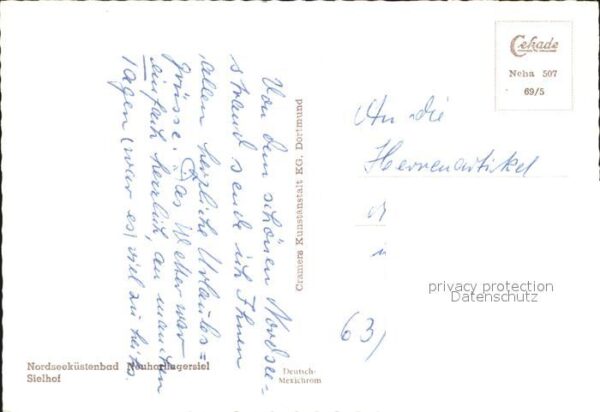 Von dem schönen Nordsee=
strand sende ich Ihnen
allen herzliche Urlaubs=
grüsse. Das Wetter war
einfach herrlich, an manchen
Tagen (war es) viel zu heiß.
Cramers Kunstanstalt KG. Dortmund
Cekade
Neha 507
69/5
An die
Herrenartikel
63,
privacy protection
Datenschutz
Nordseeküstenbad Neuharlingersiel
Sielhof
Deutsch-
Mexichrom